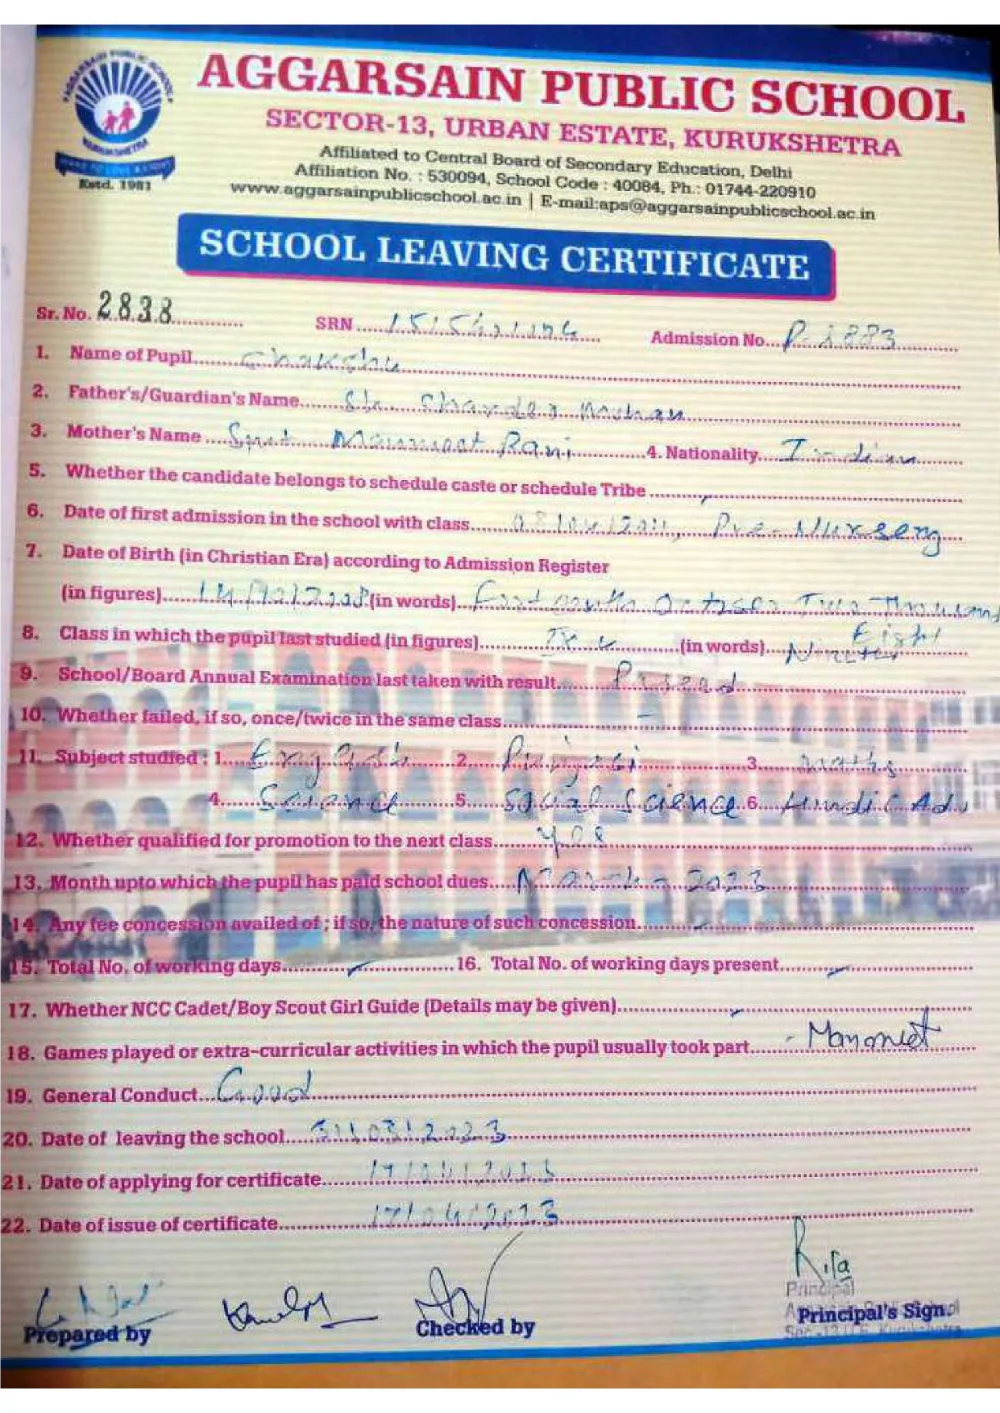 AGGARSAIN PUBLIC SCHOOL
KURUKSHETRA
Estd. 1981
AGGARSAIN PUBLIC SCHOOL
SECTOR-13, URBAN ESTATE, KURUKSHETRA
Affiliated to Central Board of Secondary Education, Delhi
Affiliation No. : 530094, School Code : 40084, Ph.: 01744-220910
www.aggarsainpublicschool.ac.in | E-mail:aps@aggarsainpublicschool.ac.in
SCHOOL LEAVING CERTIFICATE
Sr. No. 2838 SRN Admission No. P-1883
1. Name of Pupil Chakshu
2. Father's/Guardian's Name Sh. Chander Mohan
3. Mother's Name Smt Manmeet Rani 4. Nationality Indian
5. Whether the candidate belongs to schedule caste or schedule Tribe
6. Date of first admission in the school with class 08/04/2011, Pre-Nursery
7. Date of Birth (in Christian Era) according to Admission Register
(in figures) 14/10/2008 (in words) Fourteenth October Two Thousand
Eight
8. Class in which the pupil last studied (in figures) IX (in words) Ninth
9. School/Board Annual Examination last taken with result Passed
10. Whether failed, if so, once/twice in the same class -
11. Subject studied : 1. English 2. Punjabi 3. Maths
4. Science 5. Social Science 6. Hindi (Ad)
12. Whether qualified for promotion to the next class Yes
13. Month upto which the pupil has paid school dues March - 2023
14. Any fee concession availed of ; if so, the nature of such concession
15. Total No. of working days 16. Total No. of working days present
17. Whether NCC Cadet/Boy Scout Girl Guide (Details may be given)
18. Games played or extra-curricular activities in which the pupil usually took part - Manmeet
19. General Conduct Good
20. Date of leaving the school 31/03/2023
21. Date of applying for certificate 17/04/2023
22. Date of issue of certificate 17/04/2023
Principal
Prepared by Checked by Principal's Sign.